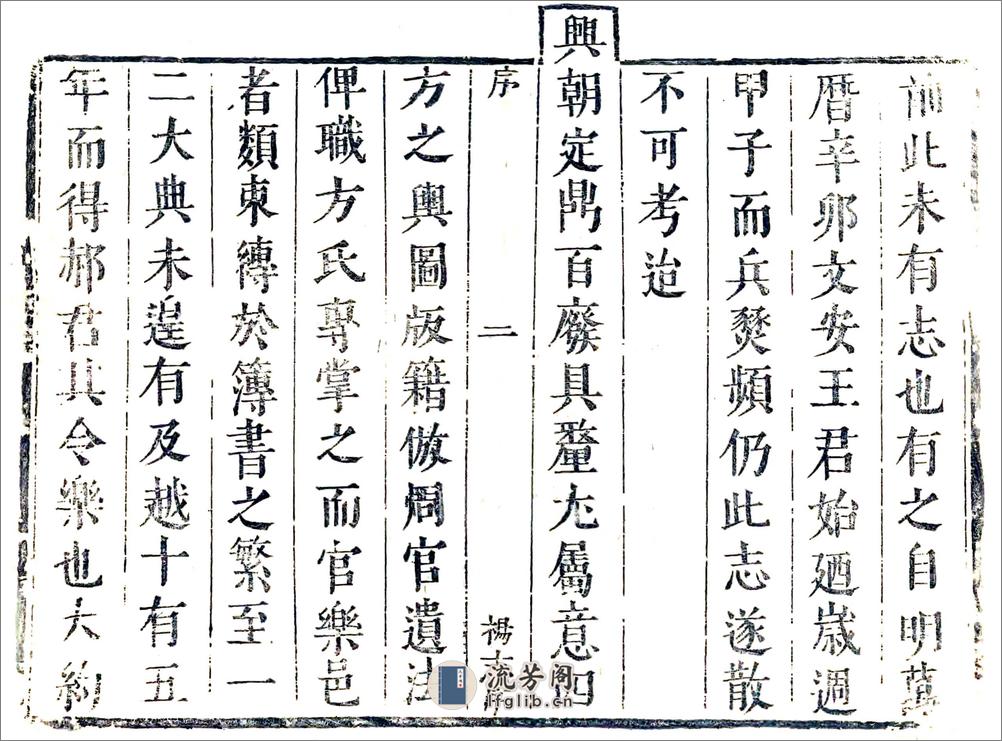 前此未有志也有之自明萬
曆辛卯文安王君始廼歲週
甲子而兵燹頻仍此志遂散
不可考迨
興朝定鼎百廢具釐尢屬意四
序 二
方之輿圖版籍倣周官遺法
俾職方氏專掌之而官樂邑
者類東縳於簿書之繁至一
二大典未遑有及越十有五
年而得郝君其令樂也大約
流芳阁
lfglib.cn